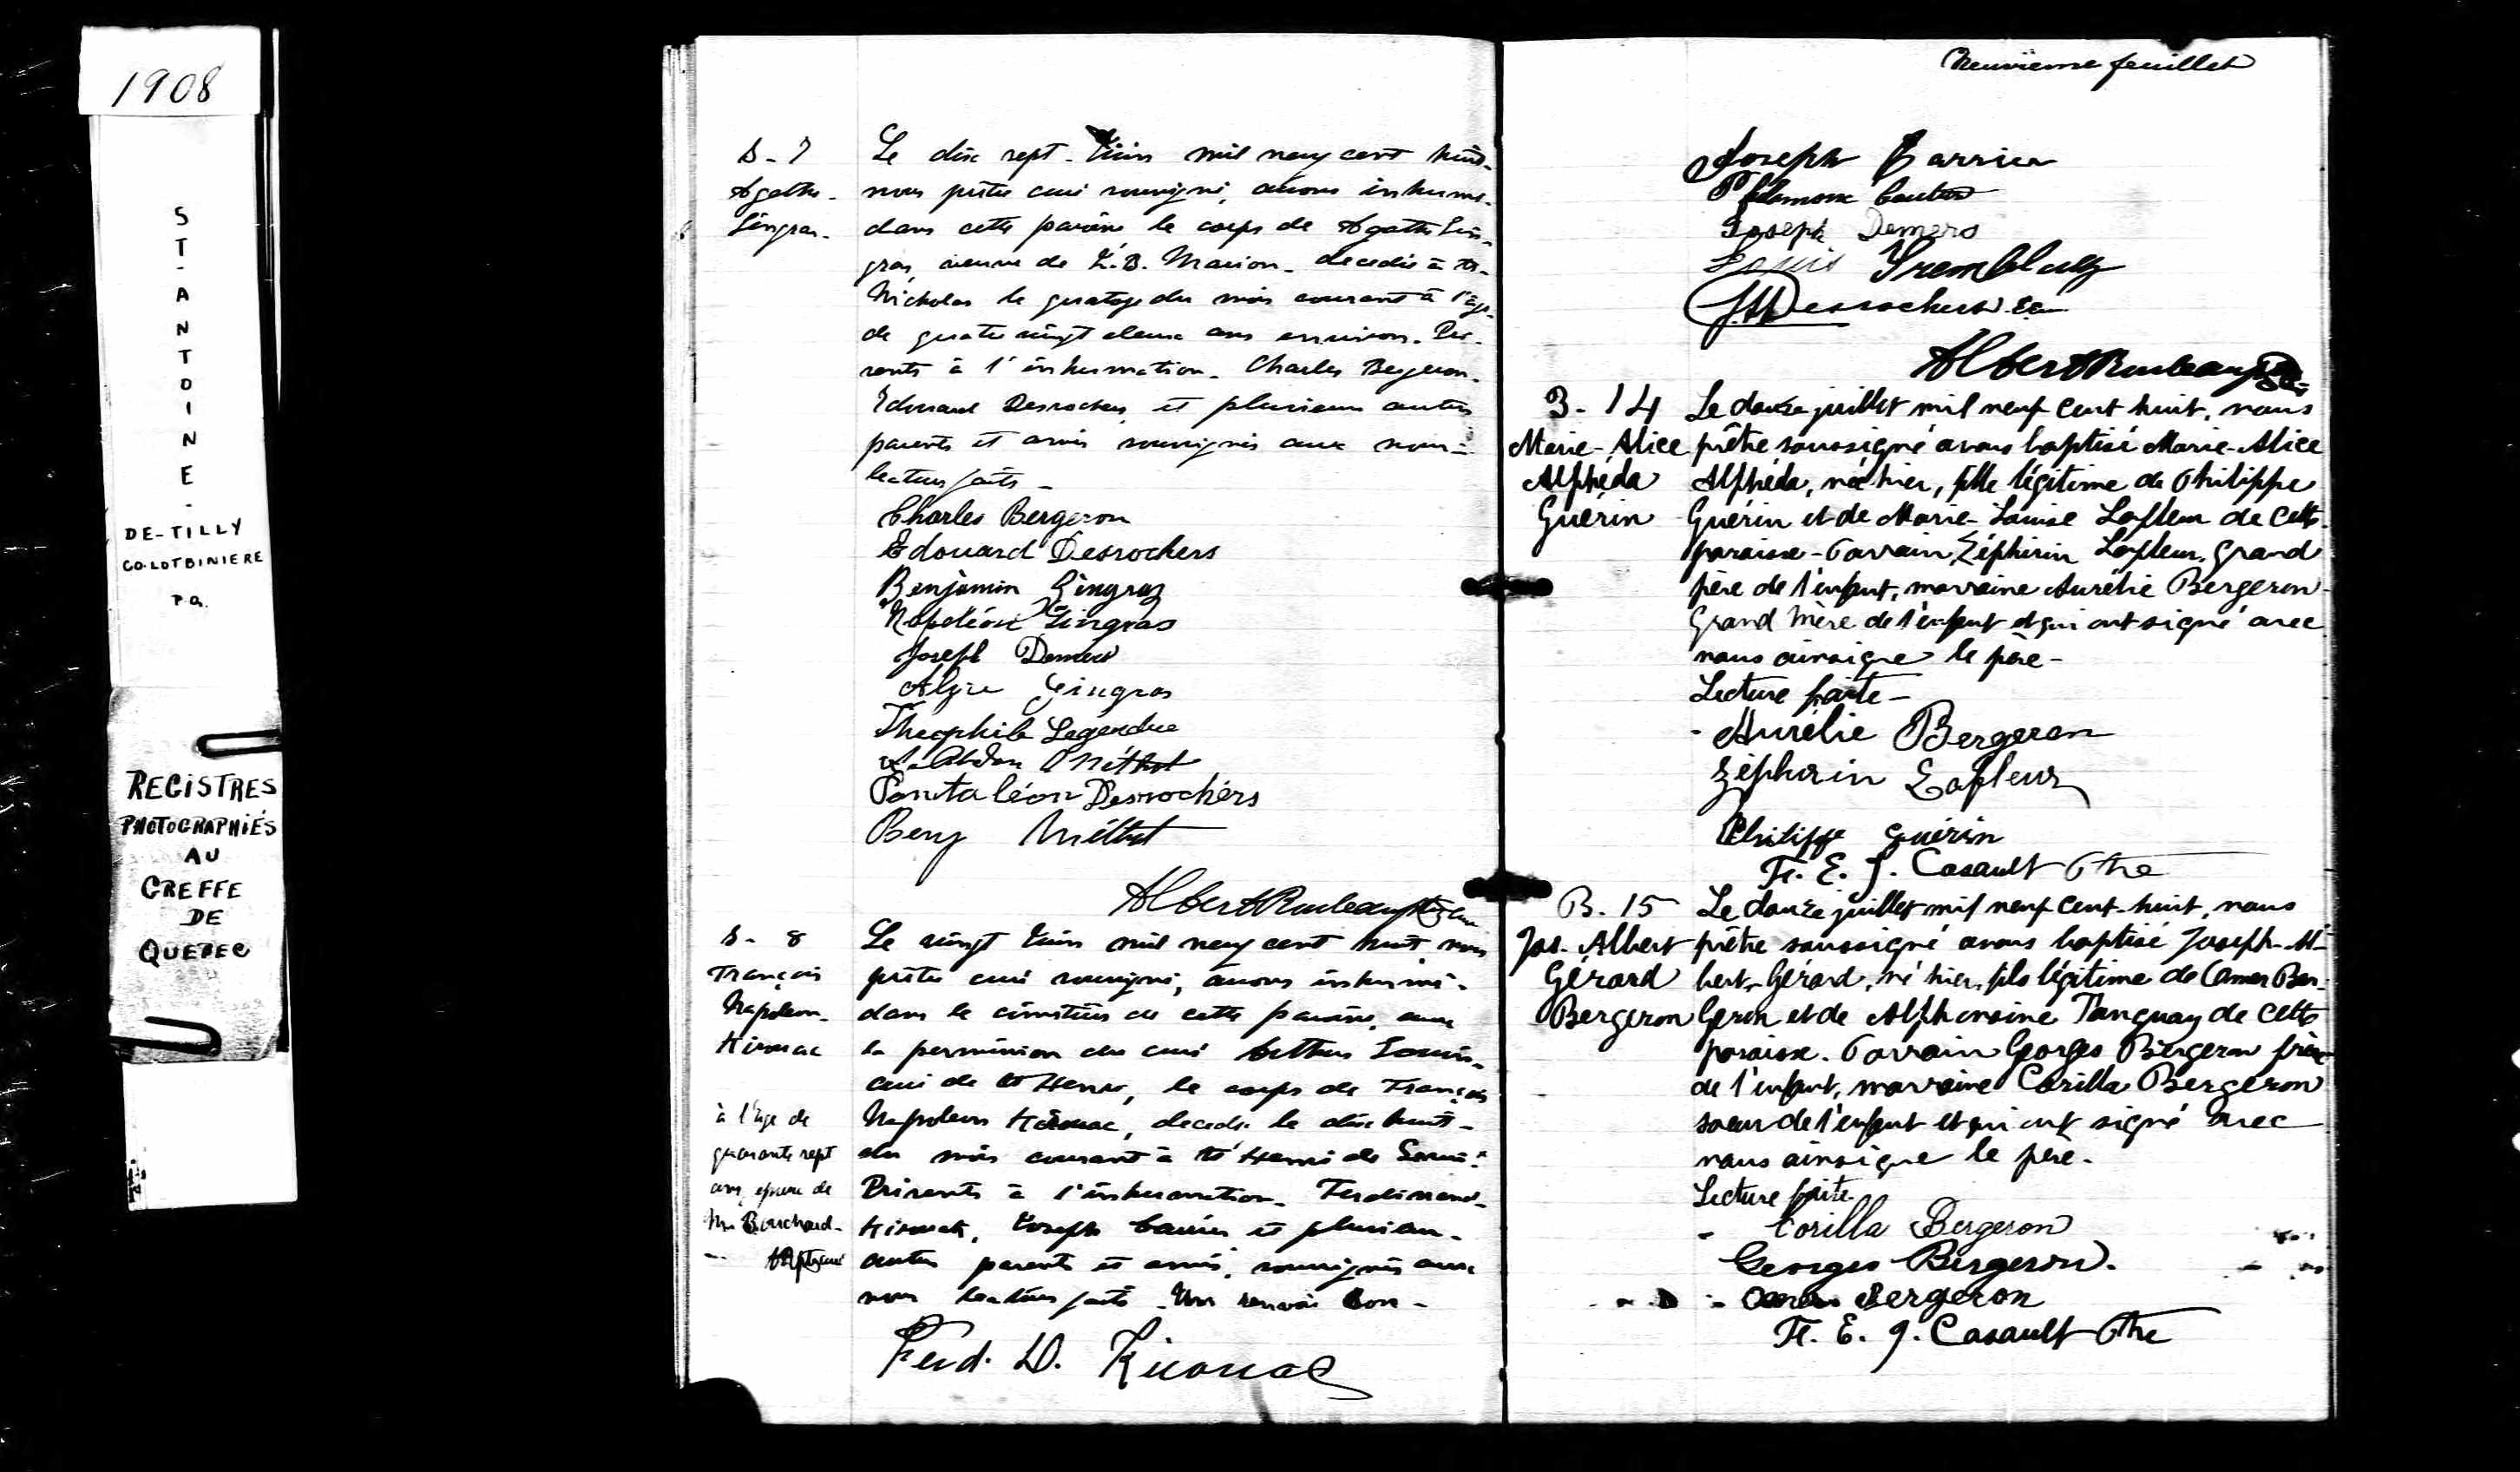 1908
ST-ANTOINE-
DE-TILLY
CO-LOTBINIERE
P.Q.
REGISTRES
PHOTOGRAPHIÉS
AU
GREFFE
DE
QUEBEC
S-7
Agathe
Gingras
Le dix sept Juin mil neuf cent huit
nous prêtre curé soussigné, avons inhumé
dans cette paroisse le corps de Agathe Gin-
gras, veuve de Marion decedée à St-
Nicholas le quatorze du mois courant à l'age
de quatre vingt deux ans environ. Pré-
sents à l'inhumation Charles Bergeron
Edouard Desrochers, et plusieurs autres
parents et amis soussignés avec nous
lecture faite
Charles Bergeron
Edouard Desrochers
Benjamin Gingras
Napoléon Gingras
Joseph Demers
Gingras
Théophile Legendre
Abdon Méthot
Pantaléon Desrochers
Benj Méthot
Albert Rouleau
S-8
François
Napoleon
Kirouac
à l'age de
quarante sept
ans, époux de
Bouchard
Le vingt Juin mil neuf cent huit nous
prêtre curé soussigné, avons inhumé
dans le cimetière de cette paroisse, avec
la permission du curé
curé de St Henri, le corps de François
Napoleon Kirouac, decedé le dix huit
du mois courant à St Henri de
Présents à l'inhumation Ferdinand
Kirouack, Joseph et plusieurs
autres parents et amis, soussignés avec
nous lecture faite Un renvoi bon
Ferd. D. Kirouac
Neuvième feuillet
Joseph
Joseph Demers
Louis Tremblay
Desrochers
Albert Rouleau
B-14
Marie-Alice
Alphéda
Guérin
Le douze juillet mil neuf cent huit, nous
prêtre soussigné avons baptisé Marie-Alice
Alphéda, née hier, fille légitime de Philippe
Guérin et de Marie-Louise Lafleur de cette
paroisse - Parrain, Zéphirin Lafleur, grand
père de l'enfant, marraine Aurélie Bergeron
Grand Mère de l'enfant et qui ont signé avec
nous ainsi que le père -
Lecture faite -
Aurélie Bergeron
Zéphirin Lafleur
Philippe Guérin
F. E. J. Casault Ptre
B. 15
Jos. Albert
Gérard
Bergeron
Le douze juillet mil neuf cent huit, nous
prêtre soussigné avons baptisé Joseph-Al-
bert-Gérard, né hier, fils légitime de Omer Ber-
geron et de Alphonsine Tanguay de cette
paroisse. Parrain Georges Bergeron frère
de l'enfant, marraine Corilla Bergeron
soeur de l'enfant et qui ont signé avec
nous ainsi que le père.
Lecture faite
Corilla Bergeron
Georges Bergeron.
Omer Bergeron
F. E. J. Casault Ptre